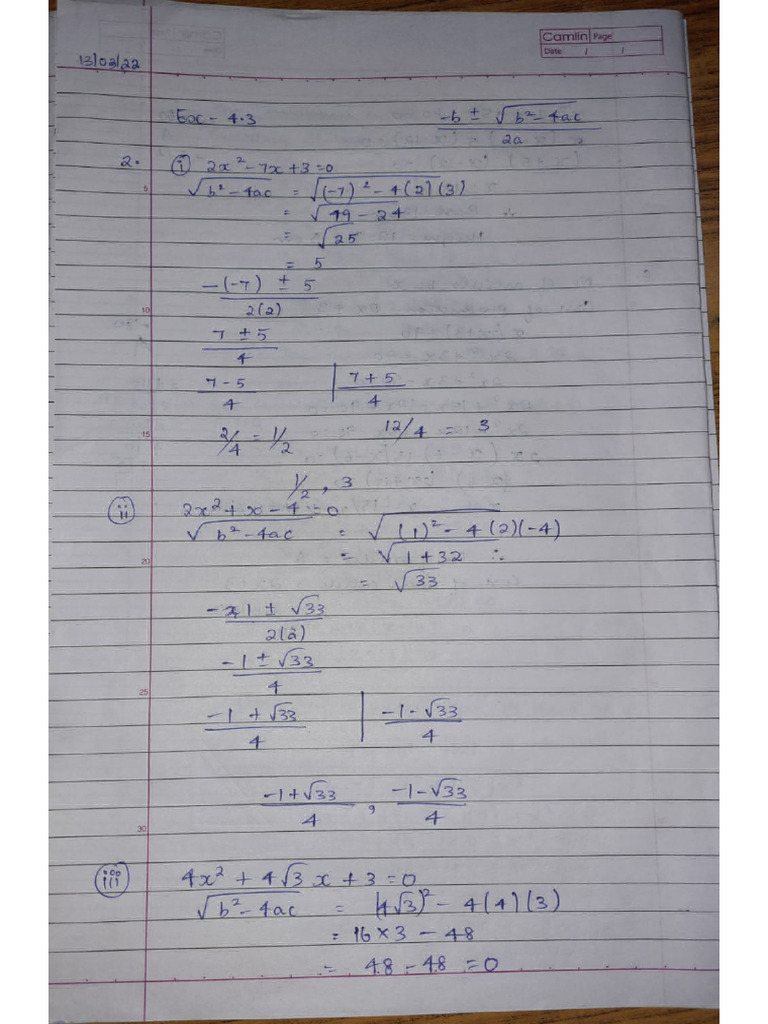 Camlin Page
Date / /
13/03/22
Ex - 4.3
-b ± √b² - 4ac / 2a
2. (i) 2x² - 7x + 3 = 0
√b² - 4ac = √(-7)² - 4(2)(3)
= √49 - 24
= √25
= 5
-(-7) ± 5 / 2(2)
7 ± 5 / 4
7 - 5 / 4 | 7 + 5 / 4
2/4 = 1/2 12/4 = 3
1/2 , 3
(ii) 2x² + x - 4 = 0
√b² - 4ac = √(1)² - 4(2)(-4)
= √1 + 32 ∴
= √33
-1 ± √33 / 2(2)
-1 ± √33 / 4
-1 + √33 / 4 | -1 - √33 / 4
-1 + √33 / 4 , -1 - √33 / 4
(iii) 4x² + 4√3 x + 3 = 0
√b² - 4ac = (4√3)² - 4(4)(3)
= 16 × 3 - 48
= 48 - 48 = 0
5
10
15
20
25
30